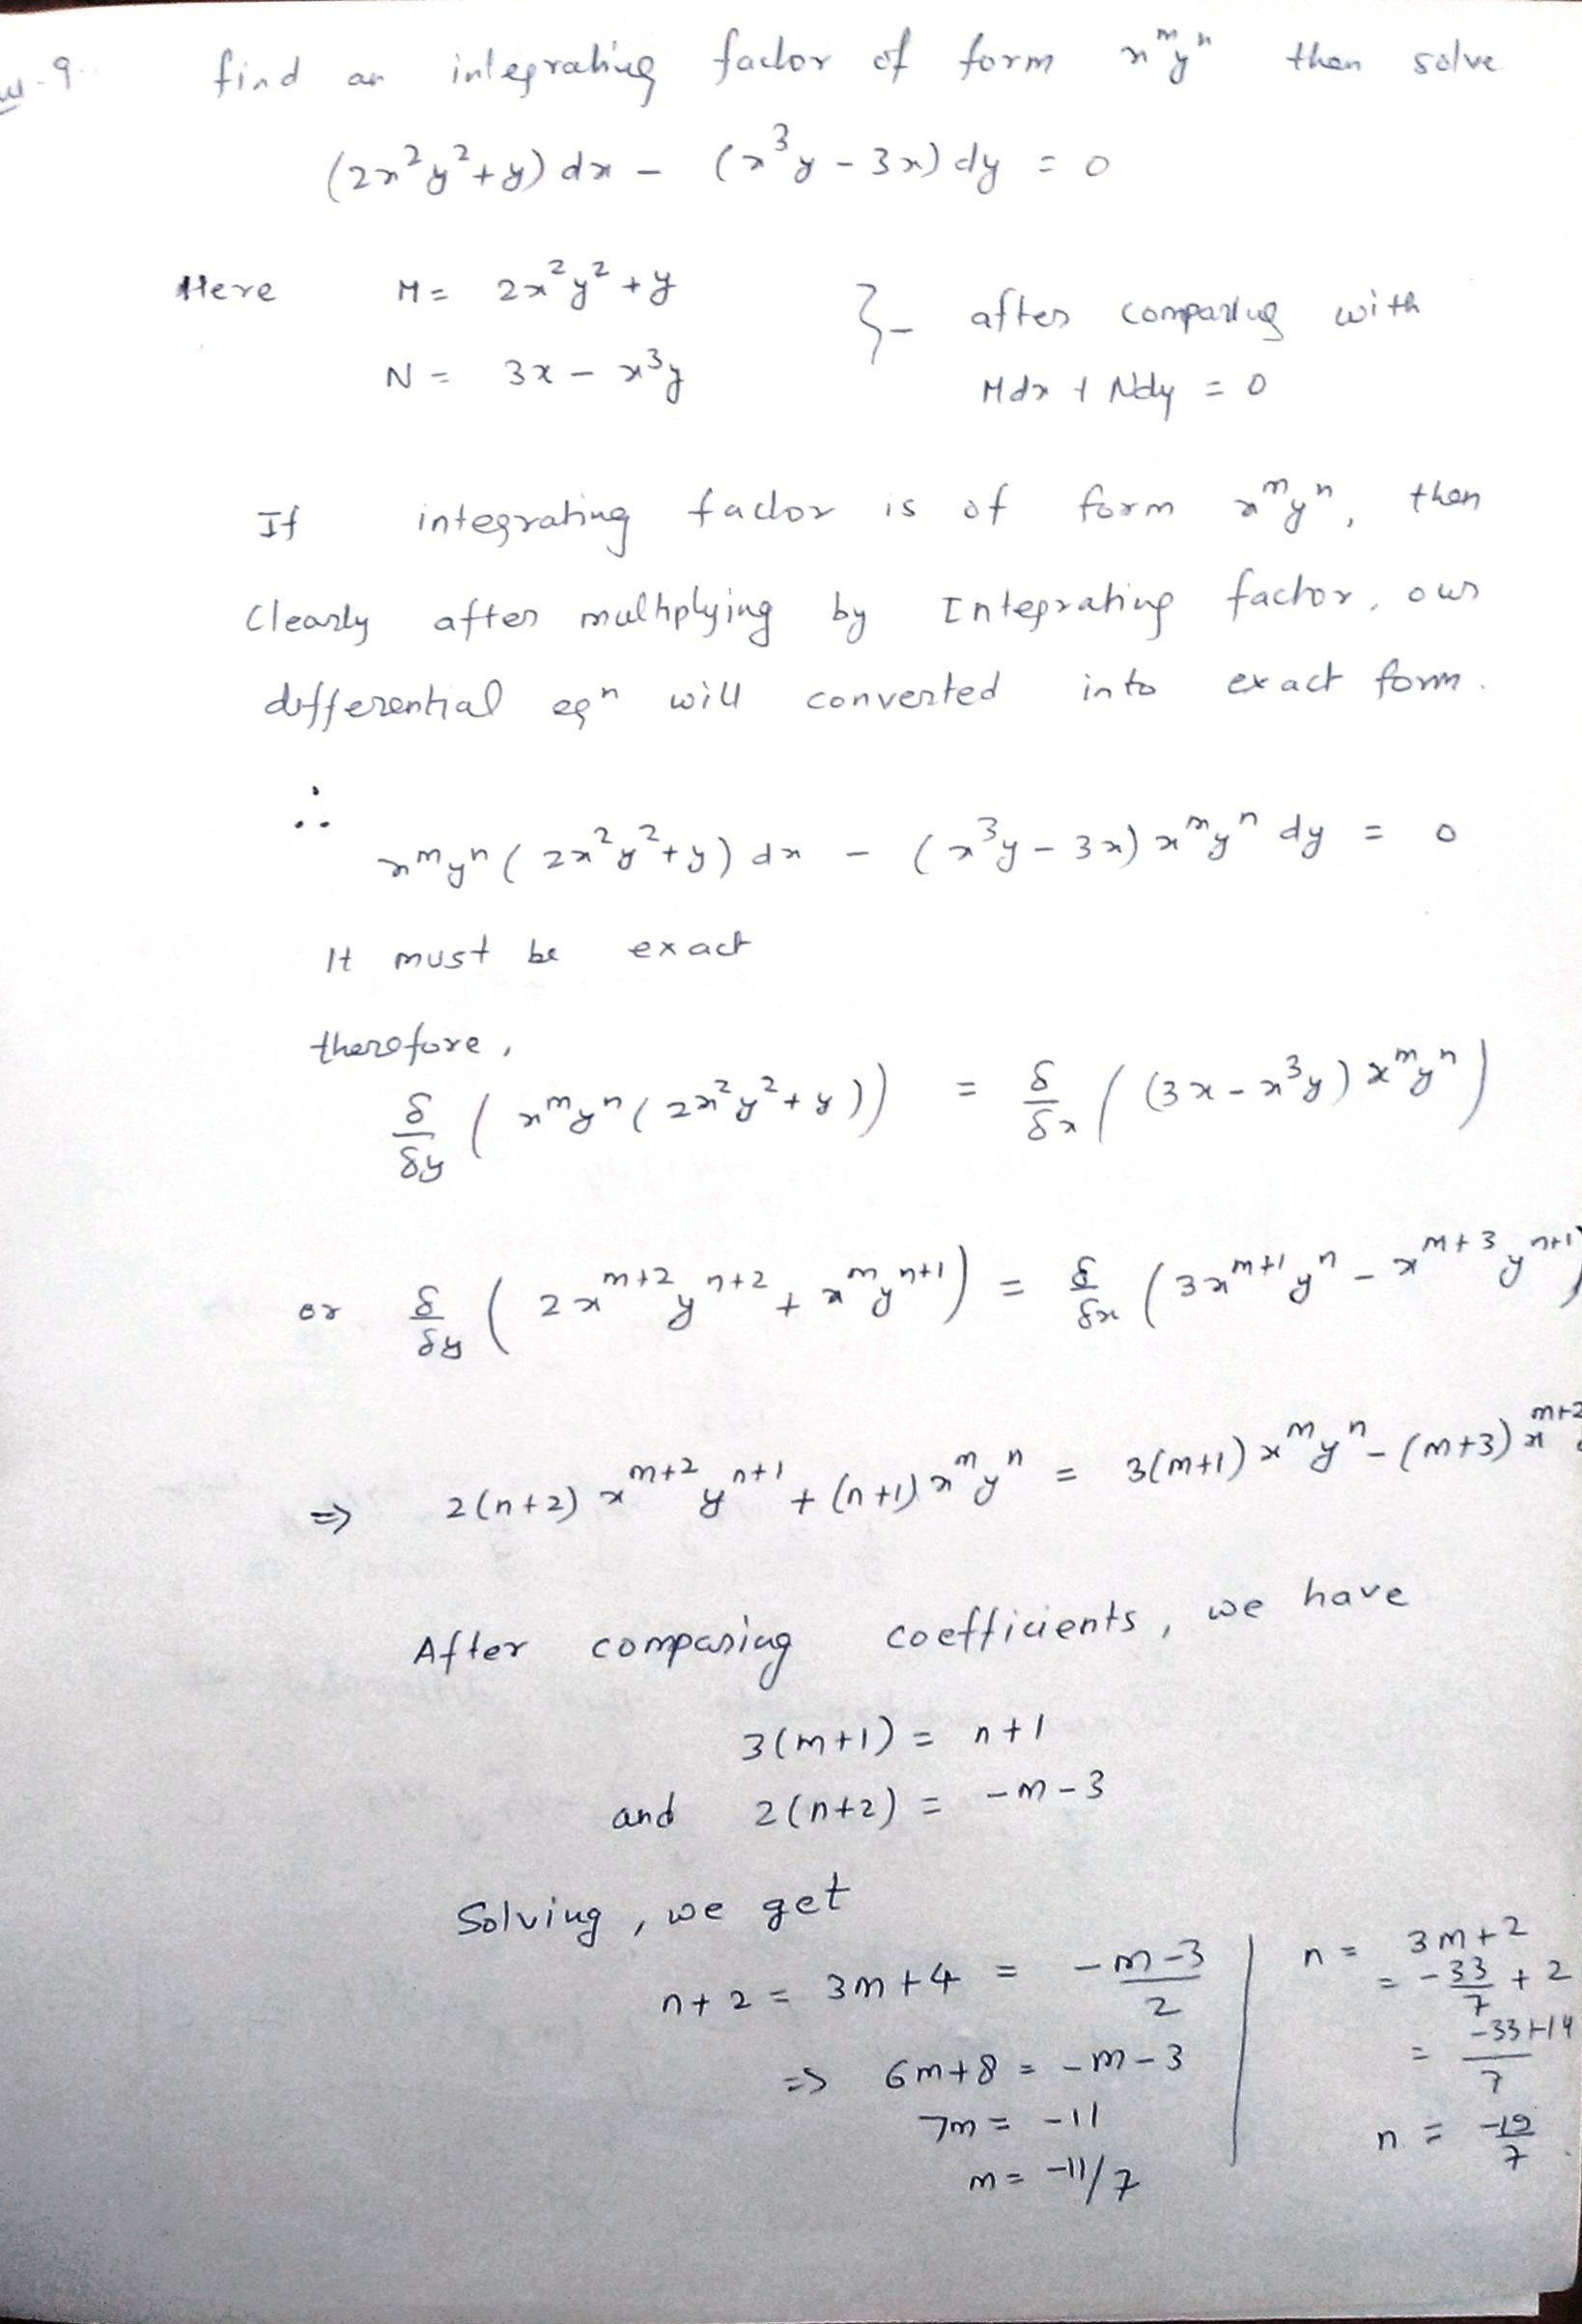 9.
find an integrating factor of form x^m y^n then solve
(2x²y²+y) dx − (x³y − 3x) dy = 0
Here M = 2x²y² + y
N = 3x − x³y
} − after comparing with
Mdx + Ndy = 0
If integrating factor is of form x^m y^n, then
Clearly after multiplying by Integrating factor, our
differential eqⁿ will converted into exact form.
∴
x^m y^n (2x²y²+y) dx − (x³y − 3x) x^m y^n dy = 0
It must be exact
therefore,
δ/δy ( x^m y^n (2x²y²+y)) = δ/δx ( (3x − x³y) x^m y^n )
or δ/δy ( 2x^{m+2} y^{n+2} + x^m y^{n+1} ) = δ/δx ( 3x^{m+1} y^n − x^{m+3} y^{n+1} )
⇒ 2(n+2) x^{m+2} y^{n+1} + (n+1) x^m y^n = 3(m+1) x^m y^n − (m+3) x^{m+2}
After comparing coefficients, we have
3(m+1) = n+1
and 2(n+2) = −m−3
Solving, we get
n+2 = 3m+4 = (−m−3)/2
⇒ 6m+8 = −m−3
7m = −11
m = −11/7
n = 3m+2
= −33/7 + 2
= (−33+14)/7
n = −19/7